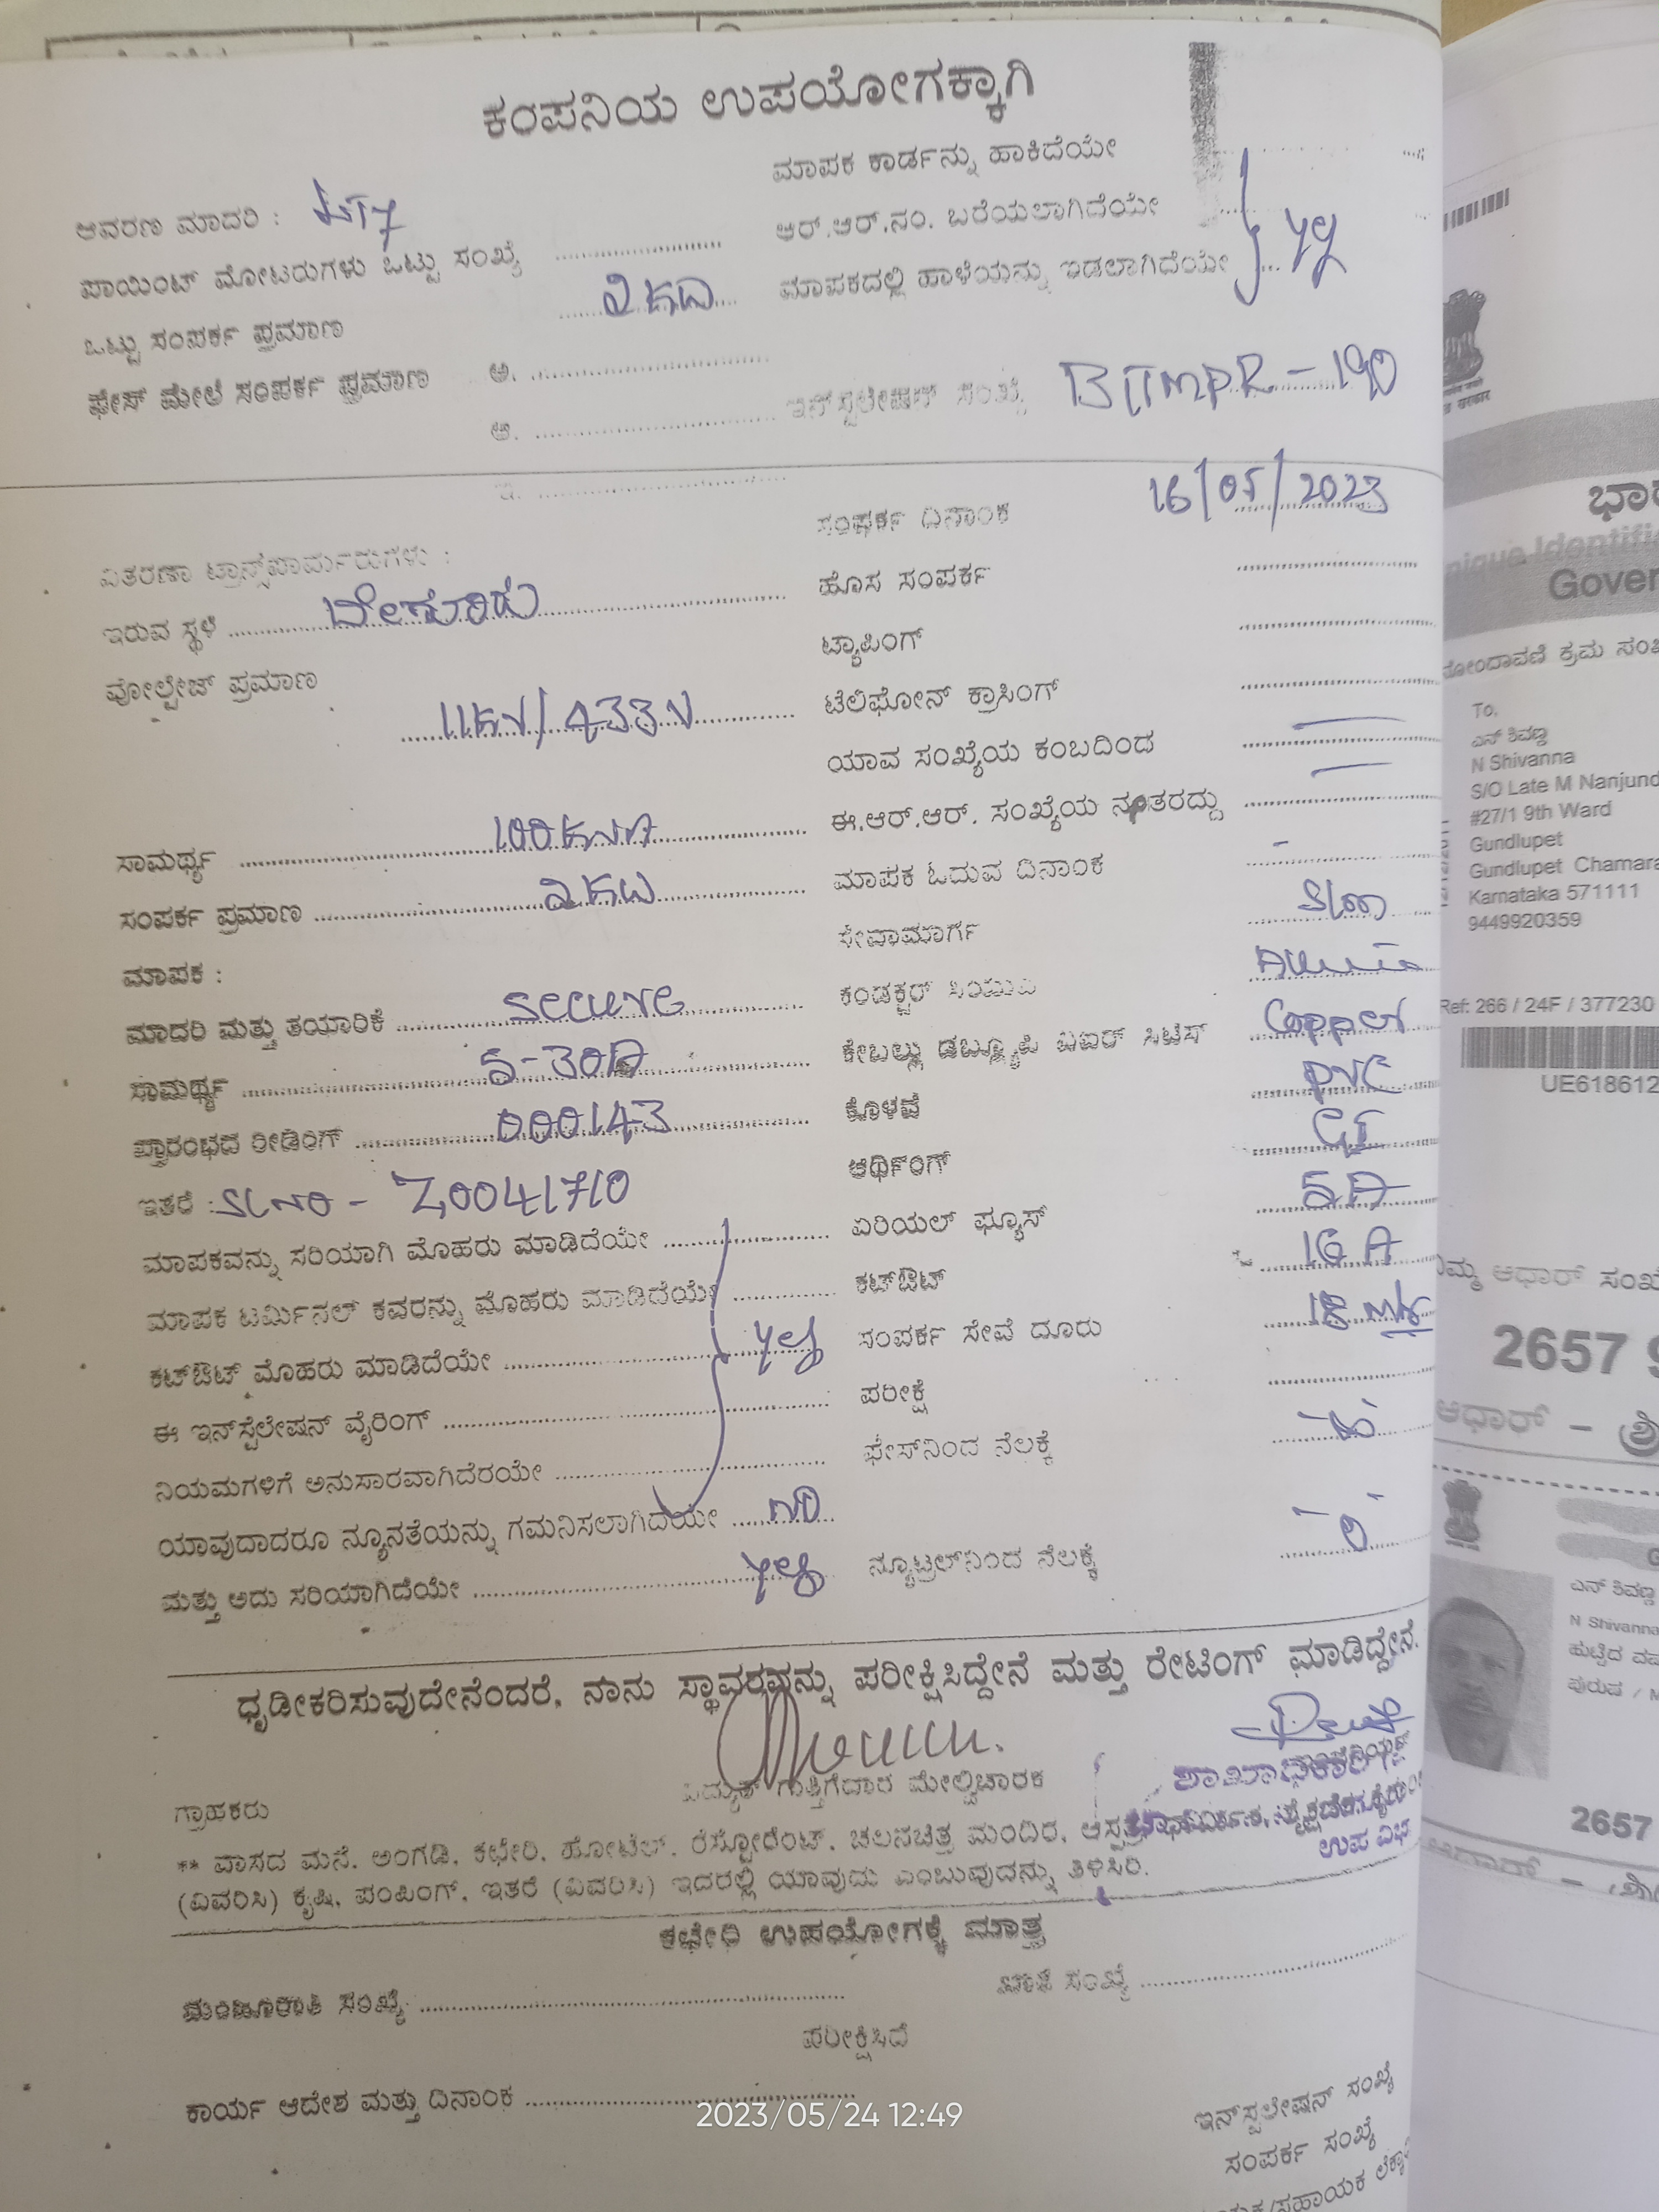 ಕಂಪನಿಯ ಉಪಯೋಗಕ್ಕಾಗಿ
ಆವರಣ ಮಾದರಿ : LT7
ಪಾಯಿಂಟ್ ಮೋಟರುಗಳು ಒಟ್ಟು ಸಂಖ್ಯೆ
ಒಟ್ಟು ಸಂಪರ್ಕ ಪ್ರಮಾಣ 2 KW
ಫೇಸ್ ಮೇಲೆ ಸಂಪರ್ಕ ಪ್ರಮಾಣ ಅ.
ಆ.
ಇ.
ಮಾಪಕ ಕಾರ್ಡನ್ನು ಹಾಕಿದೆಯೇ
ಆರ್.ಆರ್.ನಂ. ಬರೆಯಲಾಗಿದೆಯೇ
ಮಾಪಕದಲ್ಲಿ ಹಾಳೆಯನ್ನು ಇಡಲಾಗಿದೆಯೇ yes
ಇನ್‌ಸ್ಟಲೇಷನ್ ಸಂಖ್ಯೆ BTTMPR - 190
ವಿತರಣಾ ಟ್ರಾನ್ಸ್‌ಫಾರ್ಮರುಗಳು :
ಇರುವ ಸ್ಥಳ
ವೋಲ್ಟೇಜ್ ಪ್ರಮಾಣ
11KV/433V
ಸಾಮರ್ಥ್ಯ 100 KVA
ಸಂಪರ್ಕ ಪ್ರಮಾಣ 2 KW
ಮಾಪಕ :
ಮಾದರಿ ಮತ್ತು ತಯಾರಿಕೆ Secure
ಸಾಮರ್ಥ್ಯ 5-30A
ಪ್ರಾರಂಭದ ರೀಡಿಂಗ್ 000143
ಇತರೆ : SL NO - Z0041710
ಮಾಪಕವನ್ನು ಸರಿಯಾಗಿ ಮೊಹರು ಮಾಡಿದೆಯೇ
ಮಾಪಕ ಟರ್ಮಿನಲ್ ಕವರನ್ನು ಮೊಹರು ಮಾಡಿದೆಯೇ
ಕಟ್‌ಔಟ್ ಮೊಹರು ಮಾಡಿದೆಯೇ yes
ಈ ಇನ್‌ಸ್ಟಲೇಷನ್ ವೈರಿಂಗ್
ನಿಯಮಗಳಿಗೆ ಅನುಸಾರವಾಗಿದೆರಯೇ
ಯಾವುದಾದರೂ ನ್ಯೂನತೆಯನ್ನು ಗಮನಿಸಲಾಗಿದೆಯೇ NO
ಮತ್ತು ಅದು ಸರಿಯಾಗಿದೆಯೇ yes
ಸಂಪರ್ಕ ದಿನಾಂಕ 16/05/2023
ಹೊಸ ಸಂಪರ್ಕ
ಟ್ಯಾಪಿಂಗ್
ಟೆಲಿಫೋನ್ ಕ್ರಾಸಿಂಗ್
ಯಾವ ಸಂಖ್ಯೆಯ ಕಂಬದಿಂದ
ಈ.ಆರ್.ಆರ್. ಸಂಖ್ಯೆಯ ನಂತರದ್ದು
ಮಾಪಕ ಓದುವ ದಿನಾಂಕ -
ಸೇವಾಮಾರ್ಗ
ಕಂಡಕ್ಟರ್
ಕೇಬಲ್ಲು ಡಬ್ಲ್ಯೂಪಿ Copper
ಕೊಳವೆ PVC
ಆರ್ಥಿಂಗ್ GI
ಏರಿಯಲ್ ಫ್ಯೂಸ್ 5A
ಕಟ್‌ಔಟ್ 16 A
ಸಂಪರ್ಕ ಸೇವೆ ದೂರು
ಪರೀಕ್ಷೆ
ಫೇಸ್‌ನಿಂದ ನೆಲಕ್ಕೆ
ನ್ಯೂಟ್ರಲ್‌ನಿಂದ ನೆಲಕ್ಕೆ - 0 -
ಧೃಡೀಕರಿಸುವುದೇನೆಂದರೆ, ನಾನು ಸ್ಥಾವರವನ್ನು ಪರೀಕ್ಷಿಸಿದ್ದೇನೆ ಮತ್ತು ರೇಟಿಂಗ್ ಮಾಡಿದ್ದೇನೆ.
ಗ್ರಾಹಕರು ವಿದ್ಯುತ್ ಗುತ್ತಿಗೆದಾರ ಮೇಲ್ವಿಚಾರಕ ಶಾಖಾಧಿಕಾರಿ
** ವಾಸದ ಮನೆ, ಅಂಗಡಿ, ಕಛೇರಿ, ಹೋಟೆಲ್, ರೆಸ್ಟೋರೆಂಟ್, ಚಲನಚಿತ್ರ ಮಂದಿರ,
ಉಪ
(ವಿವರಿಸಿ) ಕೃಷಿ, ಪಂಪಿಂಗ್, ಇತರೆ (ವಿವರಿಸಿ) ಇದರಲ್ಲಿ ಯಾವುದು ಎಂಬುವುದನ್ನು ತಿಳಿಸಿರಿ.
ಕಛೇರಿ ಉಪಯೋಗಕ್ಕೆ ಮಾತ್ರ
ಮಂಜೂರಾತಿ ಸಂಖ್ಯೆ ಖಾತೆ ಸಂಖ್ಯೆ
ಪರೀಕ್ಷಿಸಿದೆ
ಕಾರ್ಯ ಆದೇಶ ಮತ್ತು ದಿನಾಂಕ
ಇನ್‌ಸ್ಟಲೇಷನ್ ಸಂಖ್ಯೆ
ಸಂಪರ್ಕ ಸಂಖ್ಯೆ
2023/05/24 12:49
ಭಾರ
nique Identifi
Gover
ನೋಂದಾವಣಿ ಕ್ರಮ
To,
ಎನ್ ಶಿವಣ್ಣ
N Shivanna
S/O Late M Nanjund
#27/1 9th Ward
Gundlupet
Gundlupet Chamara
Karnataka 571111
9449920359
Ref: 266 / 24F / 377230
UE618612
ನಿಮ್ಮ ಆಧಾರ್
2657 9
ಆಧಾರ್ –
ಎನ್ ಶಿವಣ್ಣ
N Shivanna
ಹುಟ್ಟಿದ
ಪುರುಷ / M
2657